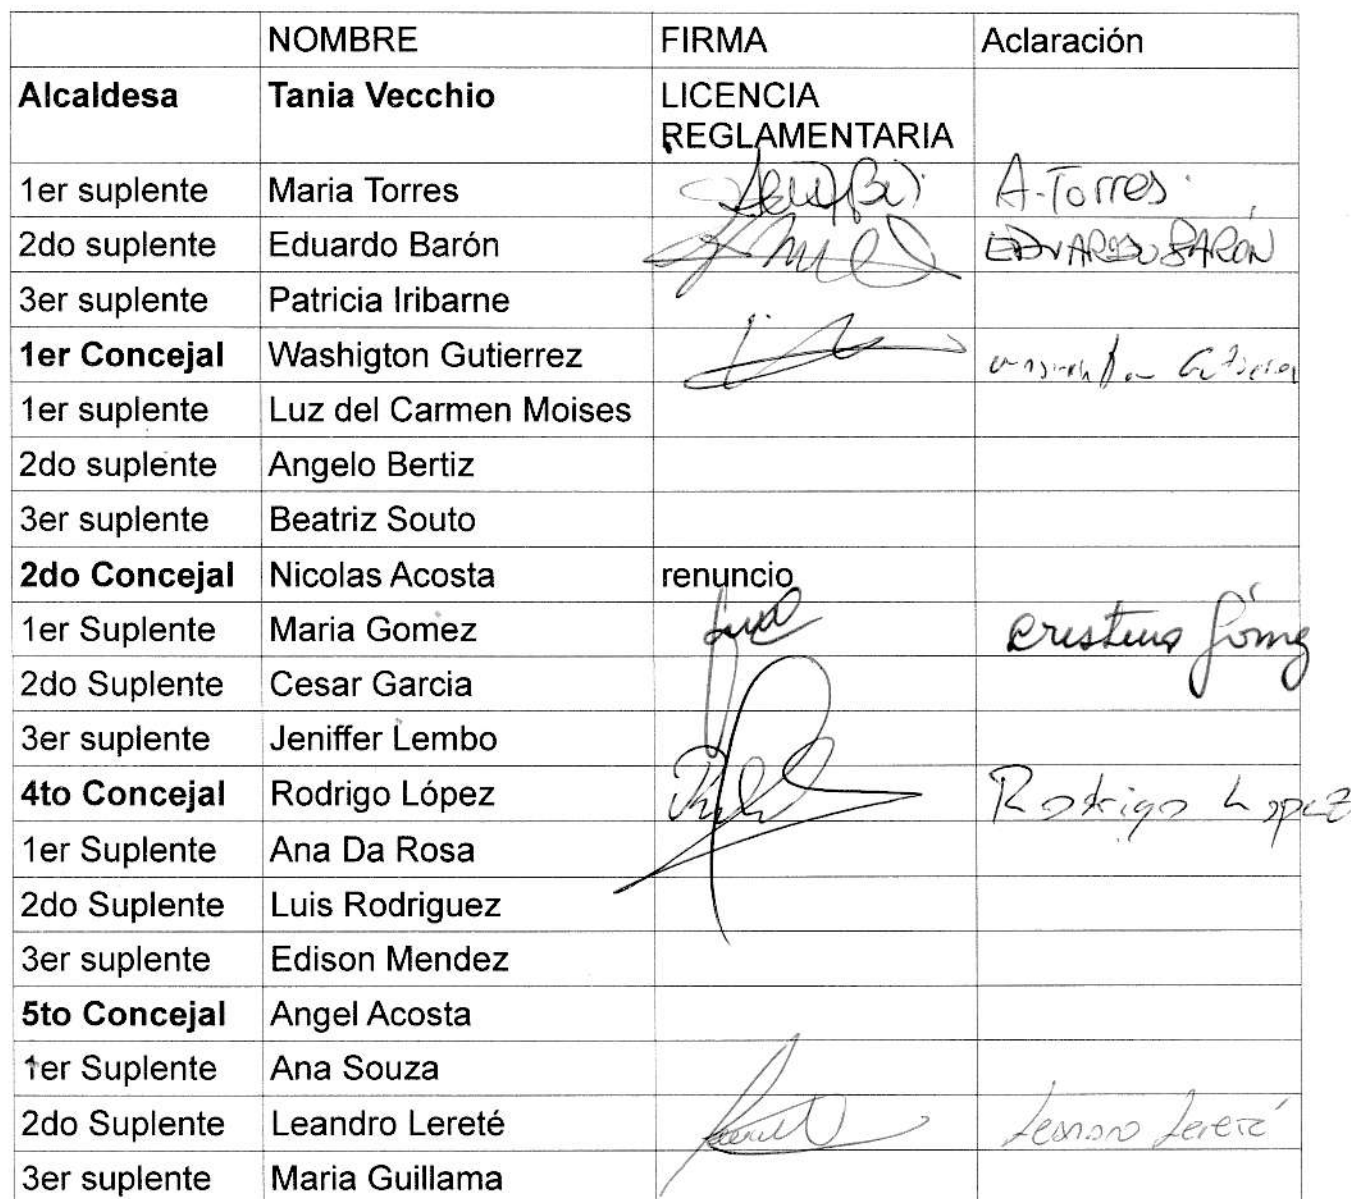 NOMBRE FIRMA Aclaración
Alcaldesa Tania Vecchio LICENCIA
REGLAMENTARIA
1er suplente Maria Torres A. Torres
2do suplente Eduardo Barón EDUARDO BARÓN
3er suplente Patricia Iribarne
1er Concejal Washigton Gutierrez
1er suplente Luz del Carmen Moises
2do suplente Angelo Bertiz
3er suplente Beatriz Souto
2do Concejal Nicolas Acosta renuncio
1er Suplente Maria Gomez Cristina Gómez
2do Suplente Cesar Garcia
3er suplente Jeniffer Lembo
4to Concejal Rodrigo López Rodrigo Lopez
1er Suplente Ana Da Rosa
2do Suplente Luis Rodriguez
3er suplente Edison Mendez
5to Concejal Angel Acosta
1er Suplente Ana Souza
2do Suplente Leandro Lereté Leandro Lereté
3er suplente Maria Guillama